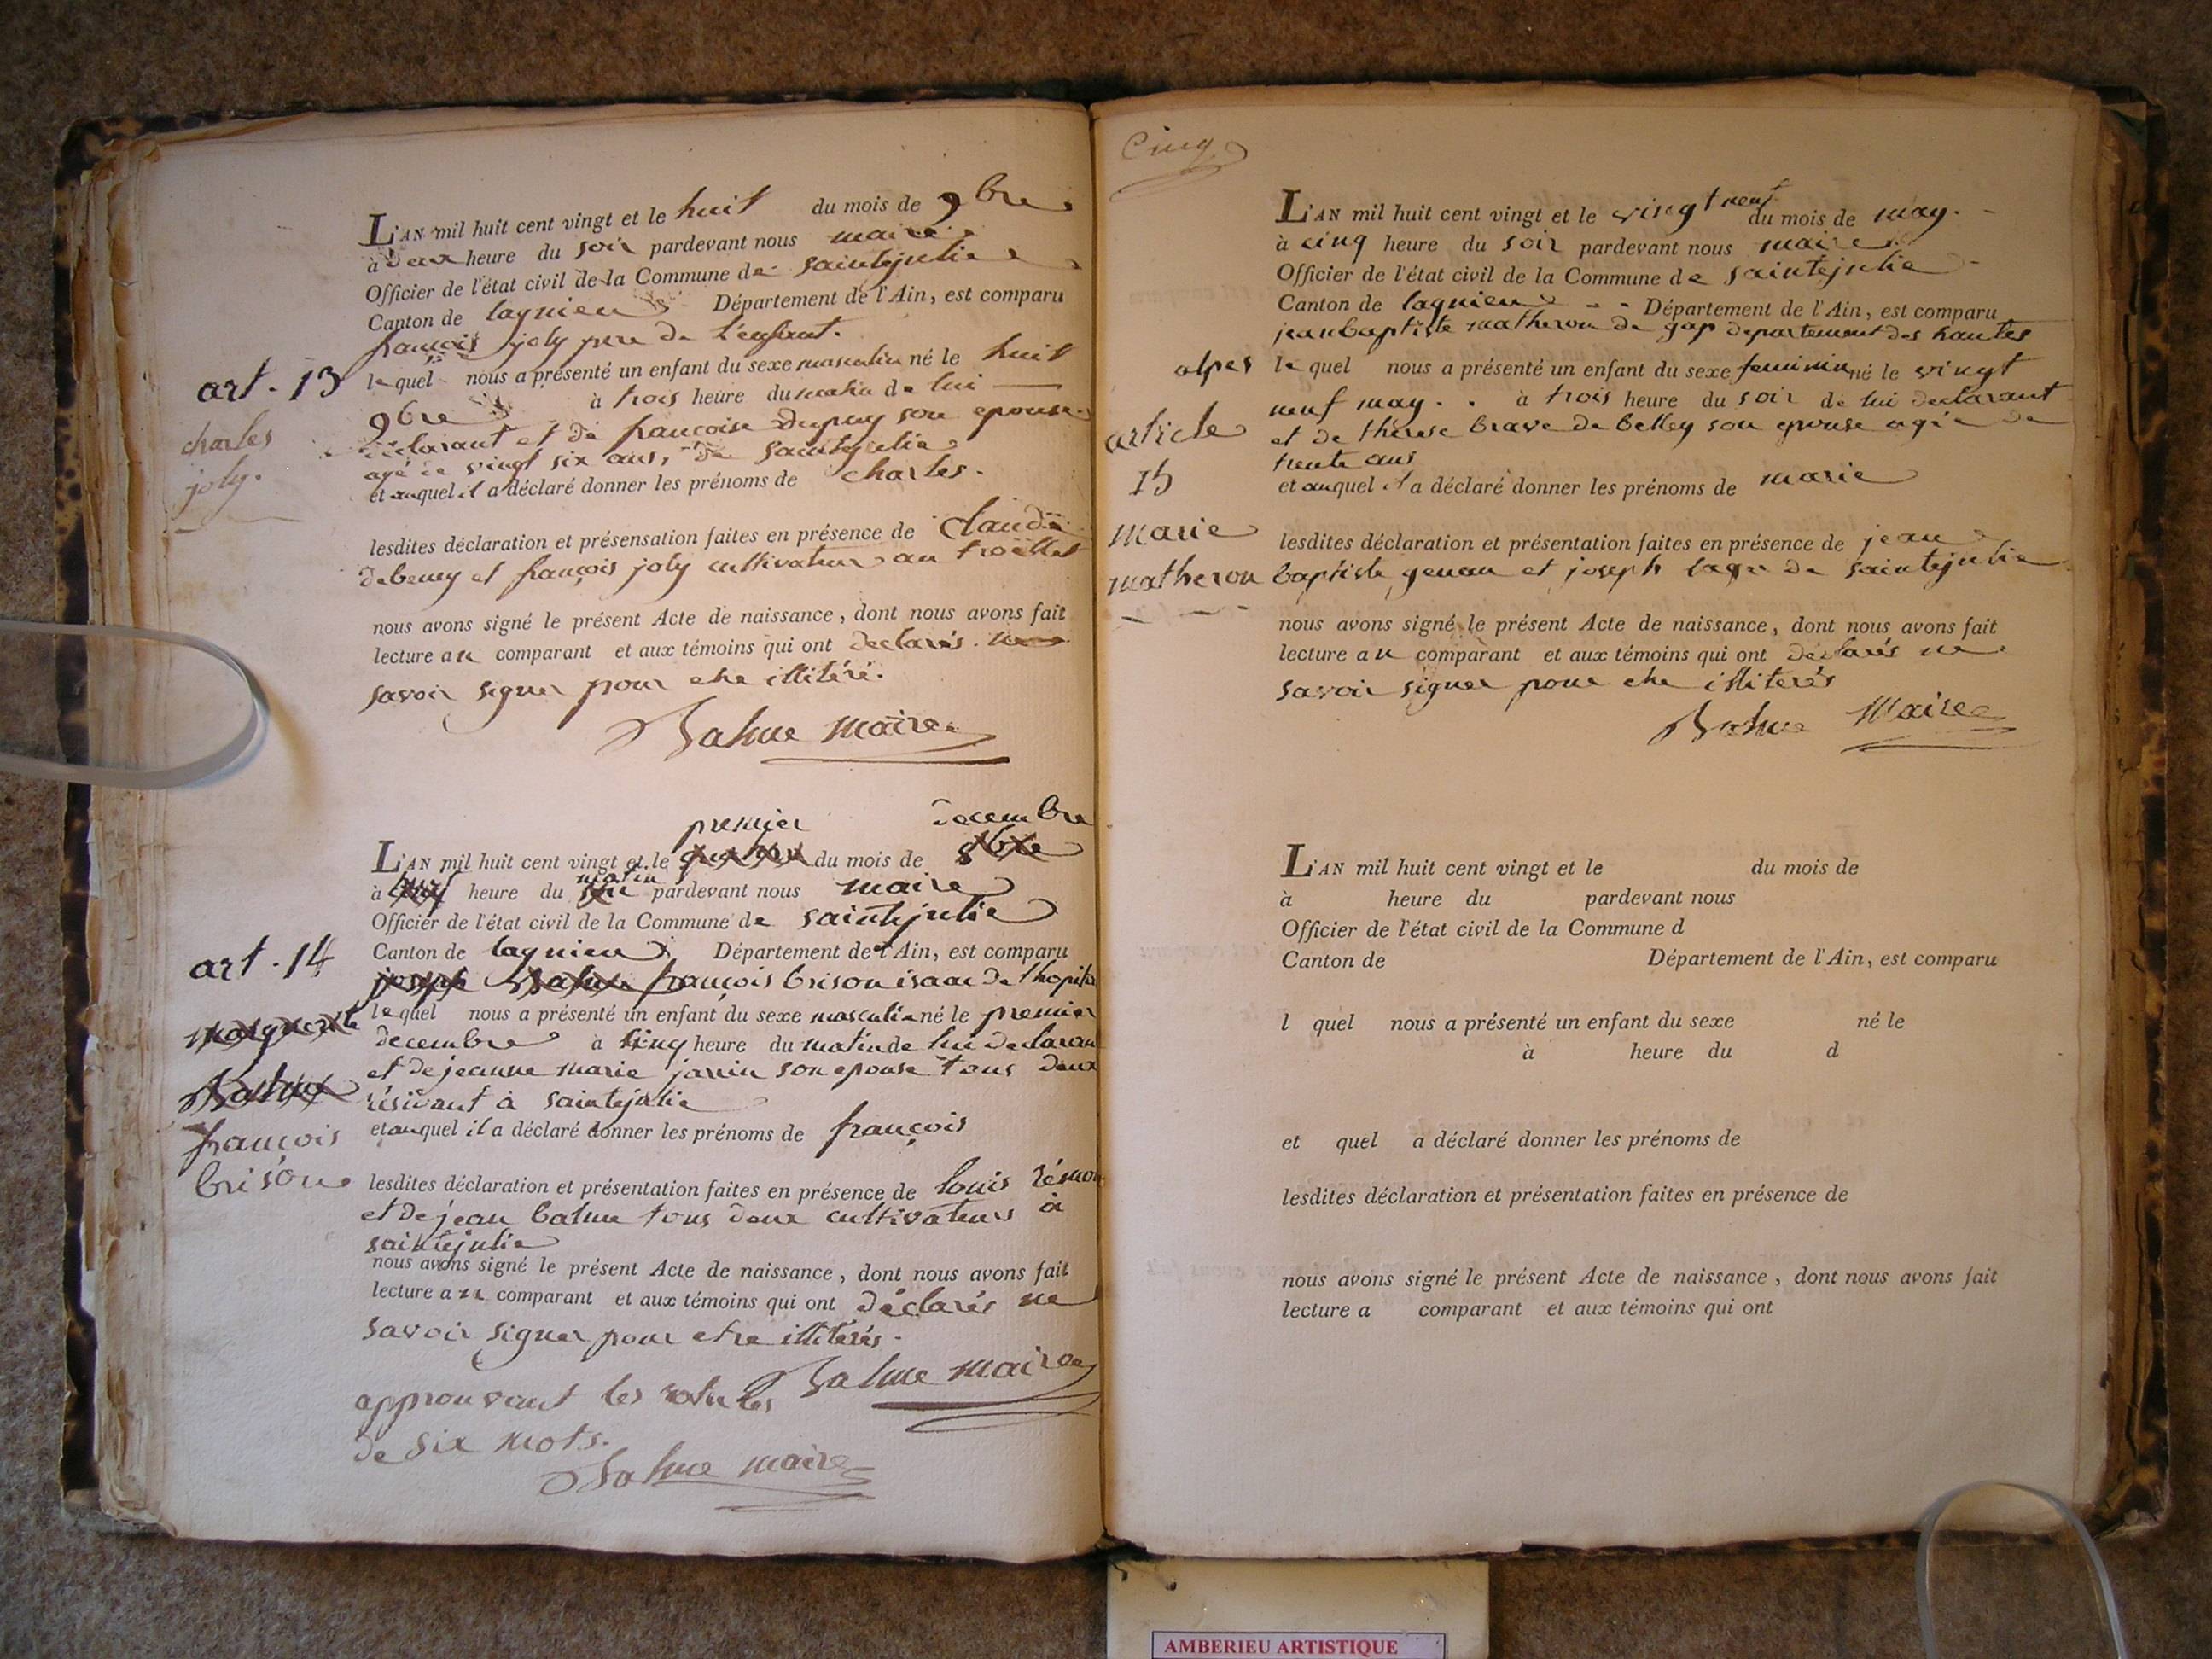 L'AN mil huit cent vingt et le huit du mois de 9bre
à deux heure du soir pardevant nous maire
Officier de l'état civil de la Commune de saintejulie
Canton de lagnieu Département de l'Ain, est comparu
françois joly pere de l'enfant.
art. 13 lequel nous a présenté un enfant du sexe masculin né le huit
9bre à trois heure du matin de lui
charles
déclarant et de francoise dupuy son epouse
joly.
agé de vingt six ans, de saintejulie
et auquel il a déclaré donner les prénoms de charles.
lesdites déclaration et présensation faites en présence de Claude
debeney et françois joly cultivateur au
nous avons signé le présent Acte de naissance, dont nous avons fait
lecture au comparant et aux témoins qui ont declarés ne
savoir signer pour etre illitéré.
Balme maire
premier decembre
L'AN mil huit cent vingt et le du mois de 8bre
matin
à heure du soir pardevant nous maire
Officier de l'état civil de la Commune de saintejulie
art. 14 Canton de lagnieu Département de l'Ain, est comparu
joseph Balme françois brison isaac de
marguerite lequel nous a présenté un enfant du sexe masculin né le premier
decembre à cinq heure du matin de lui declarant
Balme et de jeanne marie janin son epouse tous deux
résidant à saintejulie
françois et auquel il a déclaré donner les prénoms de françois
brison lesdites déclaration et présentation faites en présence de louis rémon
et de jean balme tous deux cultivateurs à
saintejulie
nous avons signé le présent Acte de naissance, dont nous avons fait
lecture au comparant et aux témoins qui ont déclarés ne
savoir signer pour etre illitérés.
Balme maire
approuvant les
de six mots.
Balme maire
Cinq
L'AN mil huit cent vingt et le vingt neuf du mois de may.
à cinq heure du soir pardevant nous maire
Officier de l'état civil de la Commune de saintejulie
Canton de lagnieu Département de l'Ain, est comparu
jeanbaptiste matheron de gap departement des hautes
alpes lequel nous a présenté un enfant du sexe feminin né le vingt
neuf may. à trois heure du soir de lui declarant
article et de therese brave de belley son epouse agée de
trente ans
15 et auquel il a déclaré donner les prénoms de marie
marie lesdites déclaration et présentation faites en présence de jean
matheron baptiste genau et joseph de saintejulie
nous avons signé le présent Acte de naissance, dont nous avons fait
lecture au comparant et aux témoins qui ont déclarés ne
savoir signer pour etre illiterés
Balme Maire
L'AN mil huit cent vingt et le du mois de
à heure du pardevant nous
Officier de l'état civil de la Commune d
Canton de Département de l'Ain, est comparu
l quel nous a présenté un enfant du sexe né le
à heure du d
et quel a déclaré donner les prénoms de
lesdites déclaration et présentation faites en présence de
nous avons signé le présent Acte de naissance, dont nous avons fait
lecture a comparant et aux témoins qui ont
AMBERIEU ARTISTIQUE